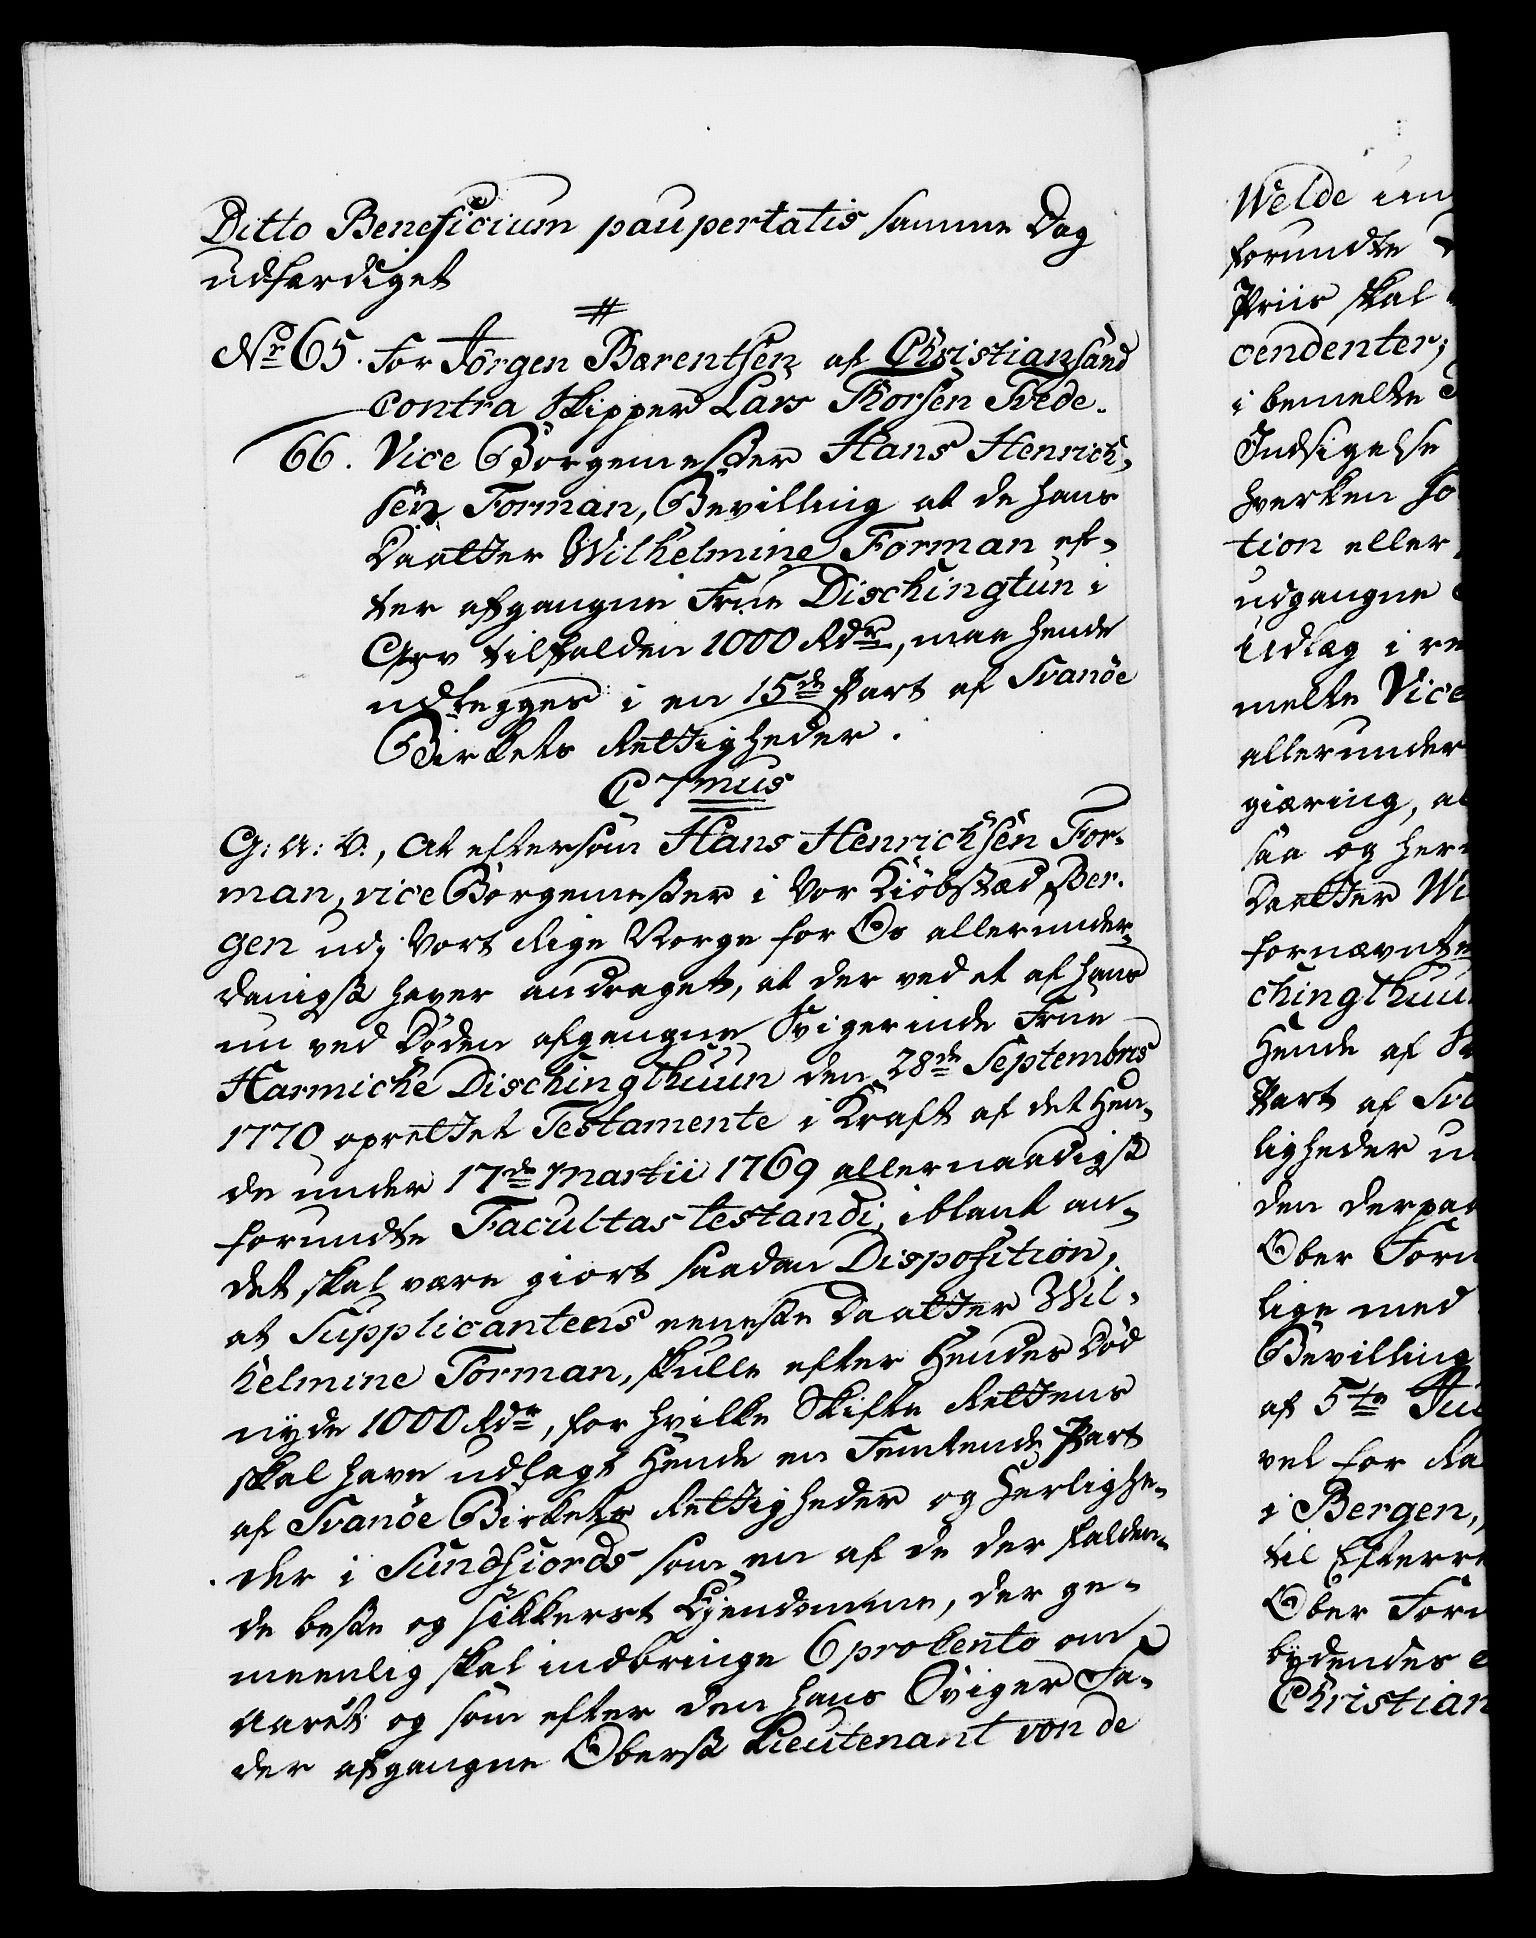 Ditto Beneficium paupertatis samme Dag
udfærdiget
#
No. 65. For Jörgen Bærentsen af Christiansand
contra Skipper Lars Thorsen Tvede.
66. Vice Borgemester Hans Henrich-
sen Forman, Bevilling at de hans
Daatter Wilhelmine Forman ef-
ter afgangne Frue Dischingtun i
Arv tilfalden 1000 Rdr, maa hende
udlegges i en 15de Part af Svanöe
Birkets Rettigheder.
C 7mus
G: A: V:, at eftersom Hans Henrichsen For-
man, vice Borgemester i Vor Kiöbstæd Ber-
gen udj Vort Rige Norge for Os allerunder-
danigst haver andraget, at der ved et af hans
nu ved Döden afgangne Svigerinde Frue
Harmiche Dischingthuun den 28de Septembris
1770 oprettet Testamente i Kraft af det Hen-
de under 17de Martii 1769 allernaadigst
forundte Facultas testandi, iblant an-
det skal være giort saadan Disposition,
at Supplicantens eeneste Daatter Wil-
helmine Forman, skulle efter Hendes Död
nyde 1000 Rdr, for hvilke Skifte Rettens
skal have udlagt Hende en Femtende Part
af Svanöe Birkets Rettigheder og Herlighe-
der i Sundfiords som en af de der falden-
de beste og sikkerst Ejendomme, der ge-
meenlig skal indbringe 6 procento om
Aaret og som efter den hans Sviger Fa-
der afgangne Oberst Lieutenant von de
Welde
forundte
Priis skal
cendenter;
i bemelte
Indsigelse
hverken
tion eller
udgangne
Udlæg i
melte Vice
allerunder
giæring,
saa og
Daatter Wi
fornævnte
chingthuu
Hende af
Part af Sv
ligheder
den derpaa
Ober Form
lige med
Bevilling
af 5te Ju
vel for
i Bergen,
til Efterre
Ober Form
bydendes
Christian